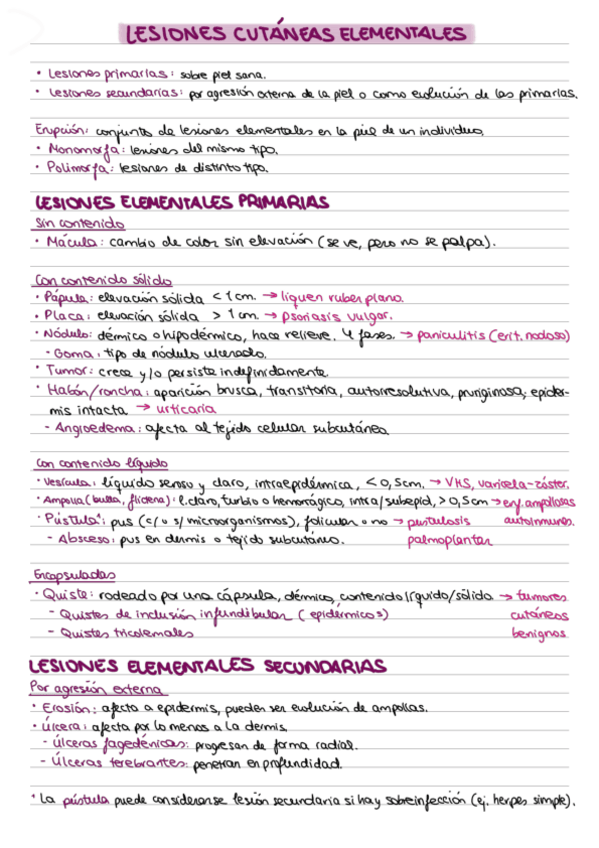 LESIONES CUTÁNEAS ELEMENTALES
• Lesiones primarias: sobre piel sana.
• Lesiones secundarias: por agresión externa de la piel o como evolución de las primarias.
Erupción: conjunto de lesiones elementales en la piel de un individuo.
• Monomorfa: lesiones del mismo tipo.
• Polimorfa: lesiones de distinto tipo.
LESIONES ELEMENTALES PRIMARIAS
Sin contenido
• Mácula: cambio de color sin elevación (se ve, pero no se palpa).
Con contenido sólido
• Pápula: elevación sólida < 1 cm. → liquen ruber plano.
• Placa: elevación sólida > 1 cm. → psoriasis vulgar.
• Nódulo: dérmico o hipodérmico, hace relieve. 4 fases. → paniculitis (erit. nodoso)
- Goma: tipo de nódulo ulcerado.
• Tumor: crece y/o persiste indefinidamente.
• Habón/roncha: aparición brusca, transitoria, autorresolutiva, pruriginosa, epider-
mis intacta → urticaria
- Angioedema: afecta al tejido celular subcutáneo.
Con contenido líquido
• Vesícula: líquido seroso y claro, intraepidérmica, < 0,5cm. → VHS, varicela-zóster.
• Ampolla (bulla, flictena): l. claro, turbio o hemorrágico, intra/subepid, > 0,5cm → enf. ampollosas
• Pústula*: pus (c/ o s/ microorganismos), folicular o no → pustulosis autoinmunes.
- Absceso: pus en dermis o tejido subcutáneo. palmoplantar
Encapsuladas
• Quiste: rodeado por una cápsula, dérmico, contenido líquido/sólido → tumores
- Quistes de inclusión infundibular (epidérmicos) cutáneos
- Quistes tricolemales benignos
LESIONES ELEMENTALES SECUNDARIAS
Por agresión externa
• Erosión: afecta a epidermis, pueden ser evolución de ampollas.
• Úlcera: afecta por lo menos a la dermis.
- Úlceras fagedénicas: progresan de forma radial.
- Úlceras terebrantes: penetran en profundidad.
* La pústula puede considerarse lesión secundaria si hay sobreinfección (ej. herpes simple).